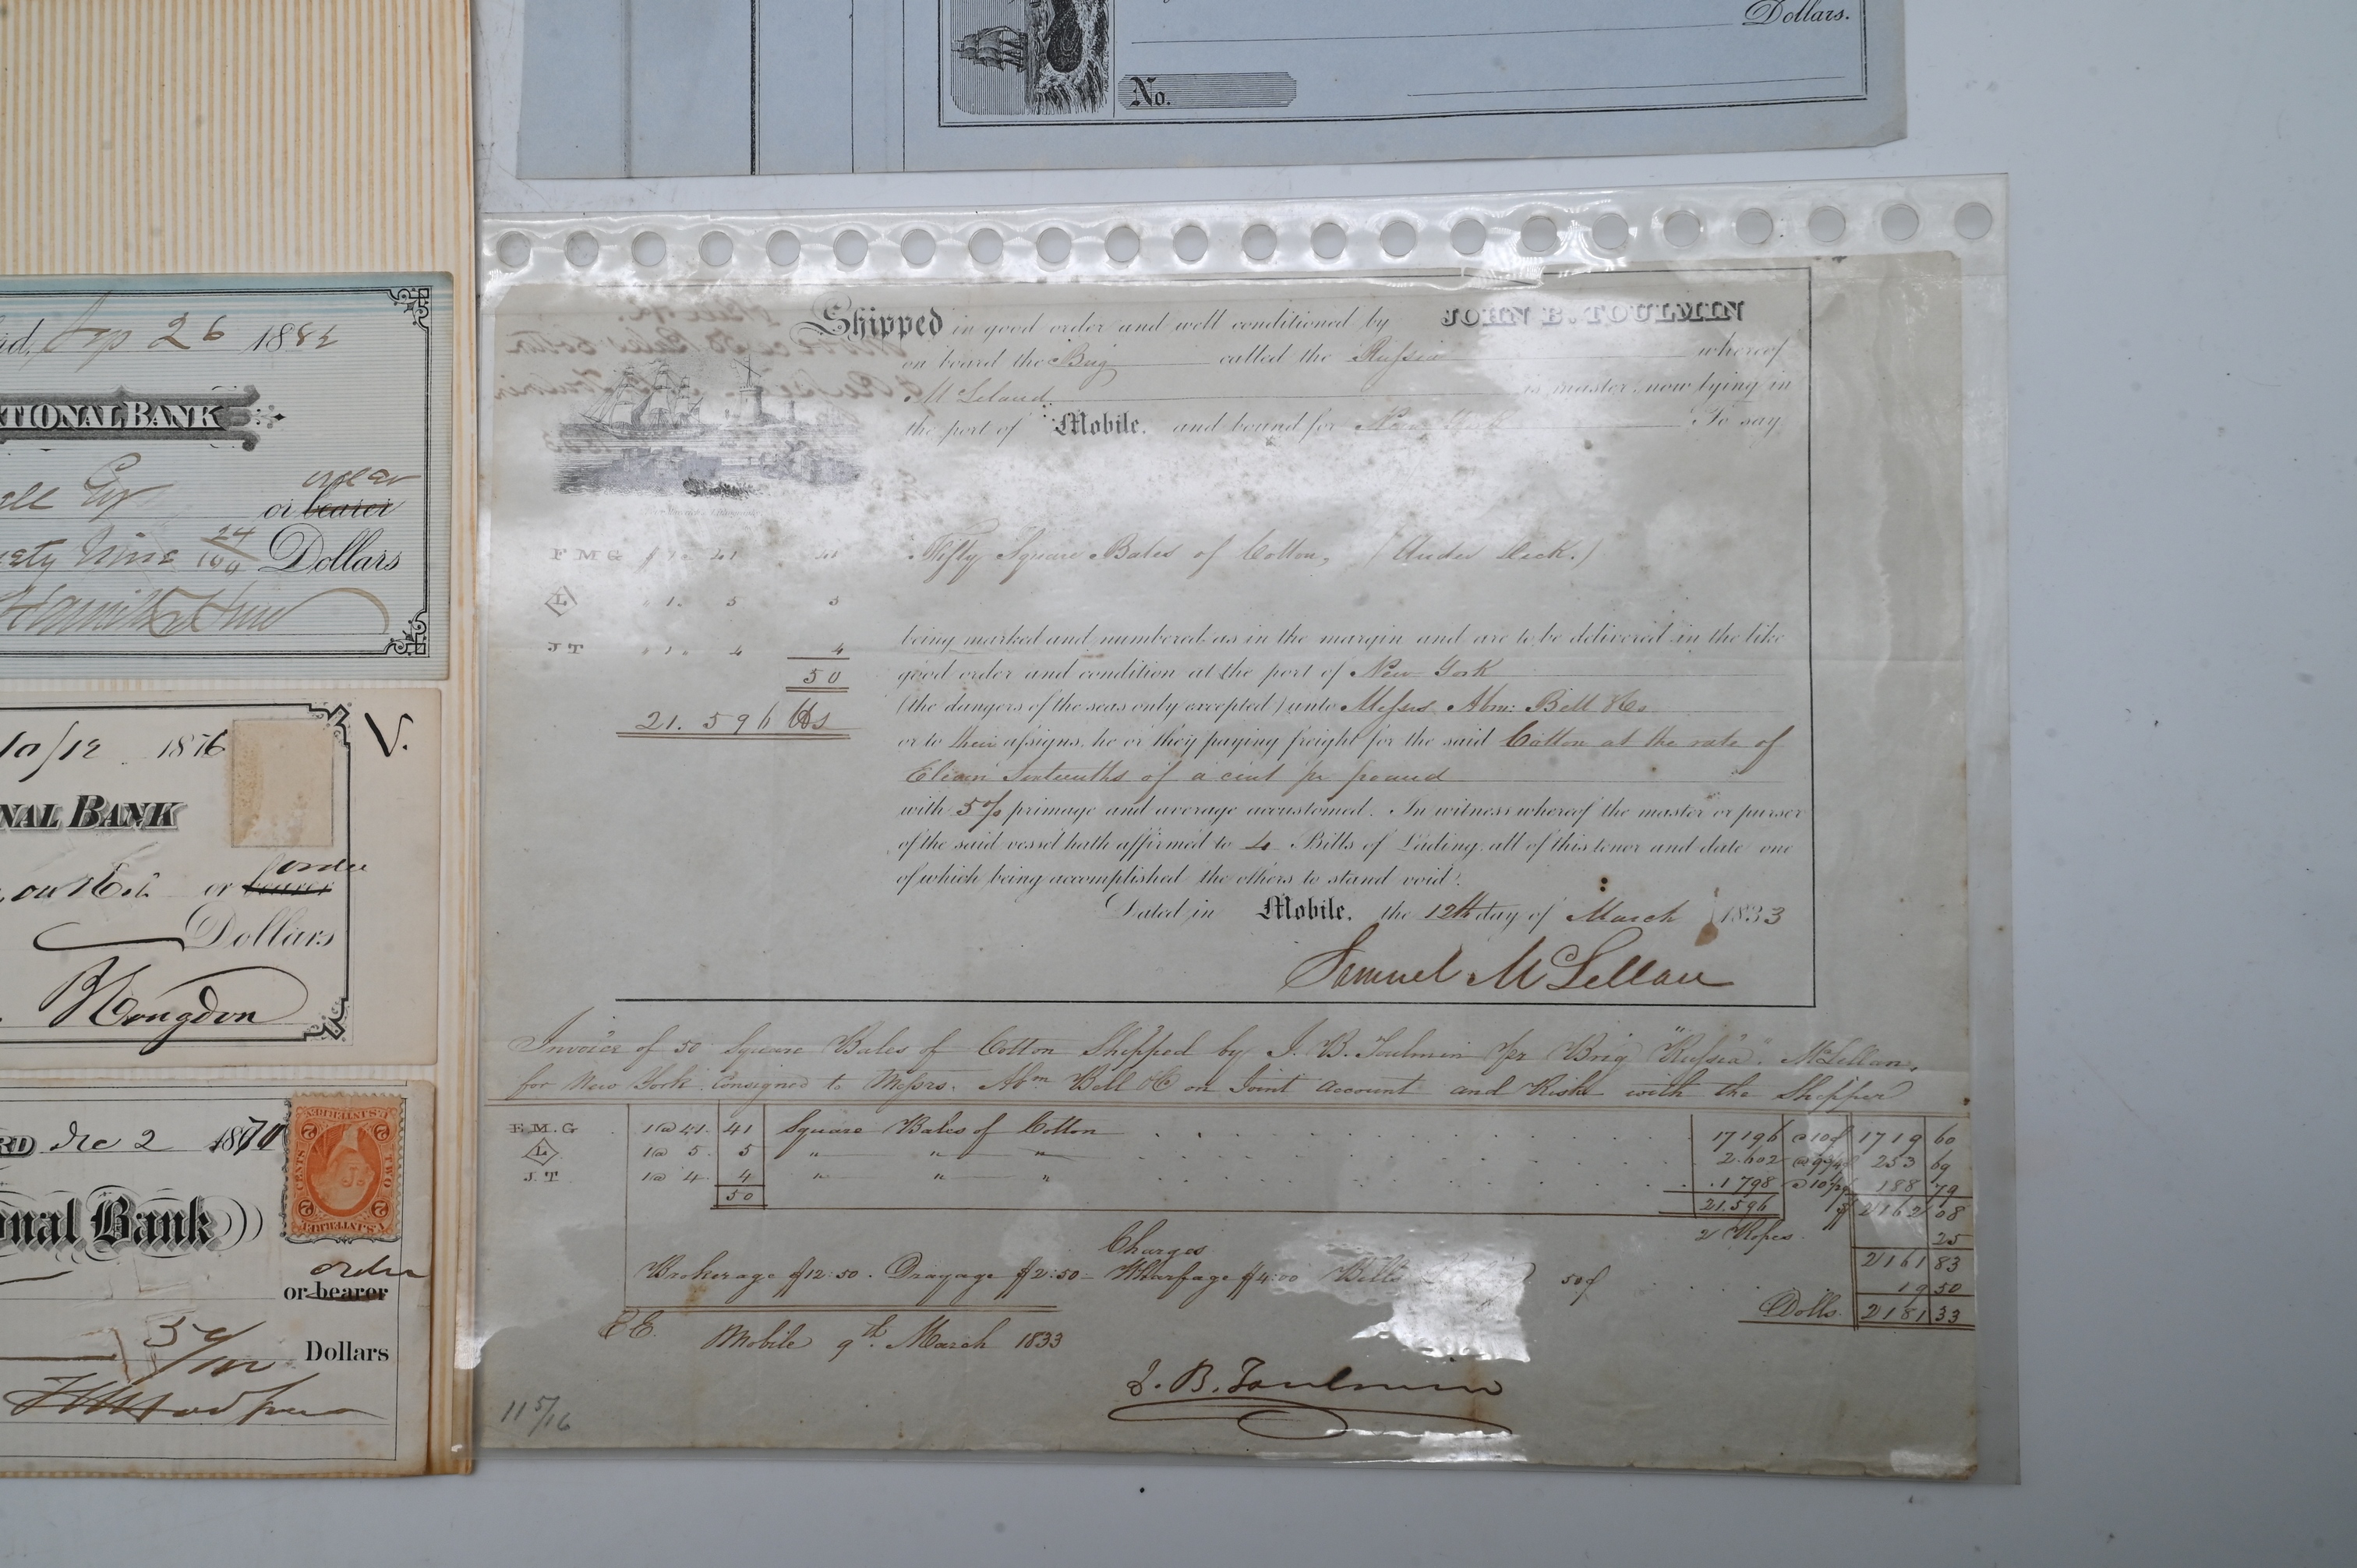 Dollars.
No.
Sep 26 1882
TIONAL BANK
order
or bearer
Nine 24/100 Dollars
10/12 1876
V.
NAL BANK
order
or bearer
Dollars
Congdon
Dec 2 1870
TWO CENTS
onal Bank
order
or bearer
59/100 Dollars
Shipped in good order and well conditioned by JOHN B. TOULMIN
on board the Brig called the Russia whereof
McLeland is master, now lying in
the port of Mobile. and bound for New York To say
F M G 1 @ 41 41 Fifty Square Bales of Cotton, (Under Deck.)
L 1. 5 5
being marked and numbered as in the margin and are to be delivered in the like
J T 4 4
50 good order and condition at the port of New York
(the dangers of the seas only excepted) unto Messrs Abm: Bell & Co
21.596 lbs or to their assigns, he or they paying freight for the said Cotton at the rate of
Eleven Sixteenths of a cent pr pound
with 5% primage and average accustomed. In witness whereof the master or purser
of the said vessel hath affirmed to 4 Bills of Lading, all of this tenor and date one
of which being accomplished the others to stand void.
Dated in Mobile. the 12th day of March 1833
Samuel McLellan
Invoice of 50 Square Bales of Cotton Shipped by J. B. Toulmin pr Brig "Russia" McLellan,
for New York Consigned to Messrs. Abm Bell & Co on Joint Account and Risk with the Shipper
F.M.G 1 @ 41. 41 Square Bales of Cotton 17196 @ 10¢ 1719 60
L 1 @ 5. 5 " " " 2.602 @ 9¾¢ 253 69
J.T 1 @ 4. 4 " " " 1798 @ 10½¢ 188 79
50 21.596 2162 08
2 Ropes 25
Charges 2161 83
Brokerage $12:50. Drayage $2:50 - Wharfage $4:00 Bills 50¢ 19 50
Dolls. 2181 33
EE.
Mobile 9th. March 1833
J. B. Toulmin
11 5/16